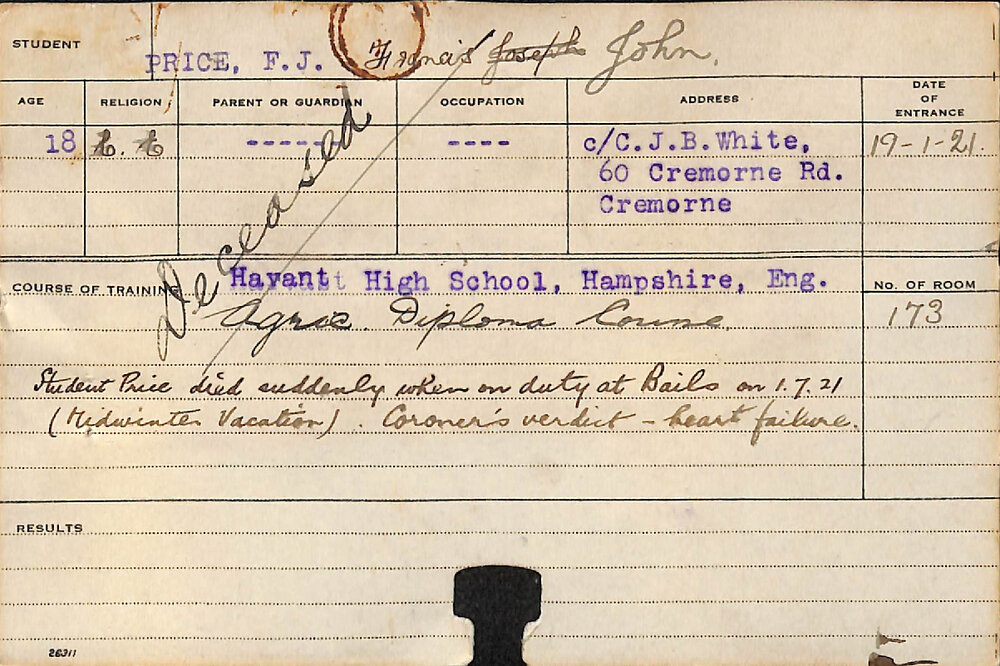 STUDENT
PRICE, F.J. Francis Joseph John.
AGE RELIGION PARENT OR GUARDIAN OCCUPATION ADDRESS DATE OF ENTRANCE
18 ----- ---- c/C.J.B.White, 19-1-21.
60 Cremorne Rd.
Cremorne
Deceased
COURSE OF TRAINING Havant High School, Hampshire, Eng. No. OF ROOM
Agric. Diploma Course 173
Student Price died suddenly when on duty at Bails on 1.7.21
(Midwinter Vacation). Coroner's verdict - heart failure.
RESULTS
26311